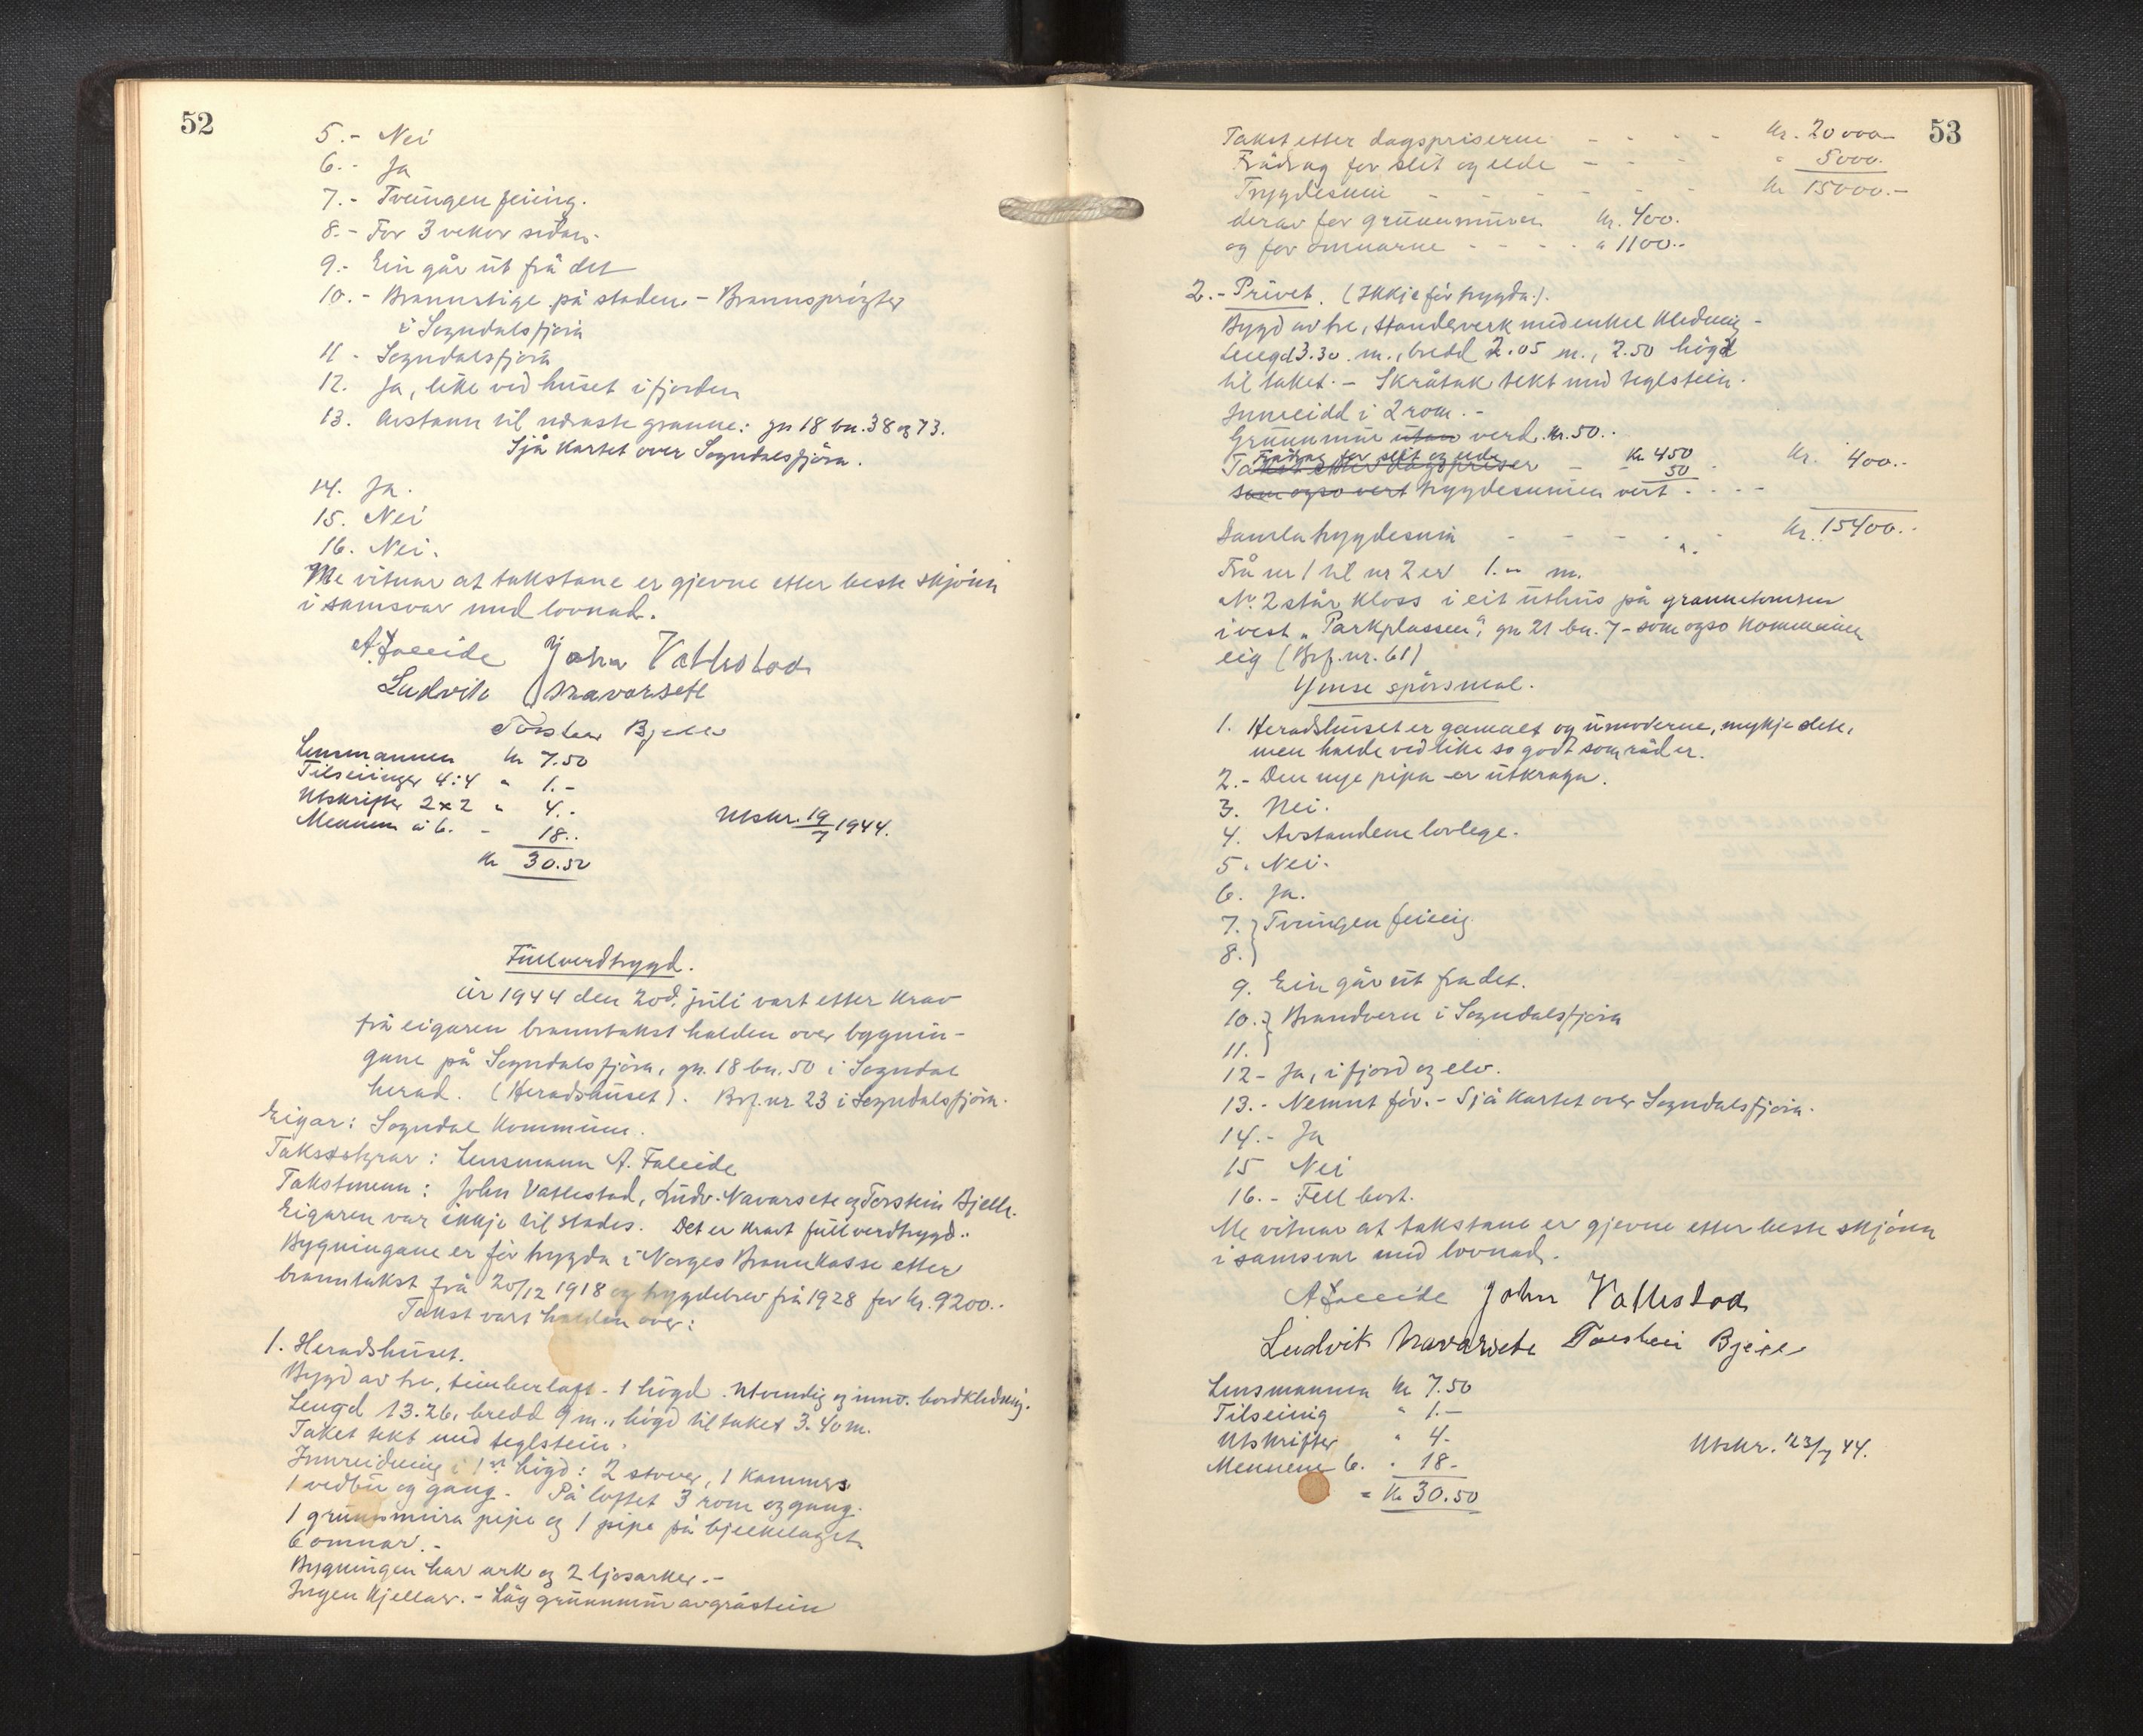 52
5.- Nei
6.- Ja
7.- Tvungen feiing.
8.- For 3 vekor sidan.
9.- Ein går ut frå det
10.- Brannstige på staden. - Brannsprøyter
i Sogndalsfjøra
11 - Sogndalsfjøra
12. Ja, like ved huset i fjorden
13. Avstann til næraste granne: gn 18 bn. 38 og 73.
Sjå kartet over Sogndalsfjøra.
14. Ja.
15. Nei
16. Nei.
Me vitnar at takstane er gjevne etter beste skjønn
i samsvar med lovnad.
A Faleide John Vatlestad
Ludvik Navarsete
Torstein Bjelle
Lensmannen kr 7.50
Tilseiingar 4:4 " 1.-
Utskrifter 2x2 " 4.-
Mennene à 6. - 18..
Utskr. 19/7 1944.
kr 30.50
Fullverdtrygd.
År 1944 den 20d. juli vart etter krav
frå eigaren branntakst halden over bygnin-
gane på Sogndalsfjøra, gn. 18 bn. 50 i Sogndal
herad. (Heradshuset). Brf. nr. 23 i Sogndalsfjøra.
Eigar: Sogndal kommune.
Takststyrar: Lensmann A. Faleide
Takstmenn: John Vatlestad, Ludv. Navarsete og Torstein Bjelle.
Eigaren var ikkje til stades. Det er kravt fullverdtrygd.
Bygningane er før trygda i Norges Brannkasse etter
branntakst frå 20/12 1918 og trygdebrev frå 1928 for kr. 9200..
Takst vart halden over:
1. Heradshuset.
Bygd av tre, timberlaft - 1 høgd. Utvendig og innv. bordkledning.
Lengd 13.26, bredd 9 m., høgd til taket 3.40 m.
Taket tekt med teglstein.
Innreiding i 1ste høgd: 2 stover, 1 kammers
1 vedbu og gang. På loftet 3 rom og gang.
1 grunnmura pipe og 1 pipe på bjelkelaget.
6 omnar.-
Bygningen har ark og 2 ljosarker.-
Ingen kjellar. - Låg grunnmur av gråstein
53
Takst etter dagsprisene - - - - kr. 20000.-
Frådrag for slit og elde - - - " 5000.
Trygdesum - - - - - - kr 15000.-
derav for grunnmuren kr. 400.
og for omnarne - - - - " 1100.-
2.- Privet. (Ikkje før trygda.).
Bygd av tre, standerverk med enkel kledning -
Lengd 3.30 m., bredd 2.05 m., 2.50 høgd
til taket. - Skråtak tekt med teglstein.
Innreidd i 2 rom.-
Grunnmur utan verd. kr. 50..
Frådrag for slit og elde kr 450
Takst etter dagspriser - - 50 - kr. 400.-
som ogso vert trygdesummen vert - - - -
Samla trygdesum - - - - - kr. 15400..
Frå nr 1 til nr 2 er 1.- m.
Nr. 2 står kloss i eit uthus på grannetomten
i vest "Parkplassen", gn 21 bn. 7 - som ogso kommunen
eig (Brf. nr. 61)
Ymse spørsmal.
1. Heradshuset er gamalt og umoderne, mykje slite,
men halde vedlike so godt som råd er.
2.- Den nye pipa er utkraga.
3. Nei.
4. Avstandene lovlege.
5. Nei.
6. Ja.
7. } Tvungen feiing
8. }
9. Ein går ut fra det.
10. } Brandvern i Sogndalsfjøra
11. }
12- Ja, i fjord og elv.
13.- Nemnt før.- Sjå kartet over Sogndalsfjøra.
14.- Ja
15 Nei
16.- Fell bort.
Me vitnar at takstane er gjevne etter beste skjønn
i samsvar med lovnad.
A Faleide John Vatlestad
Ludvik Navarsete Torstein Bjelle
Lensmannen kr 7.50
Tilseiing " 1.-
Utskrifter " 4-
Mennene 6. " 18-
Utskr. 23/7 44.
= kr 30.50